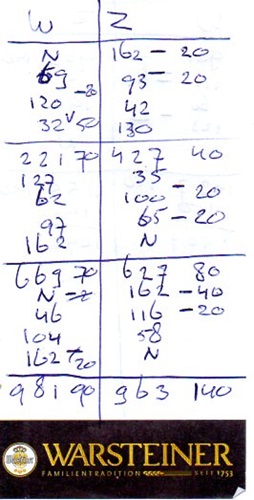 W Z
N 162 - 20
69 93 - 20
120 - 20 42
32 V 50 130
221 70 427 40
127 35
62 100 - 20
97 65 - 20
162 N
669 70 627 80
N 162 - 40
46 116 - 20
104 58
162 - 20 N
981 90 963 140
WARSTEINER
FAMILIENTRADITION SEIT 1753